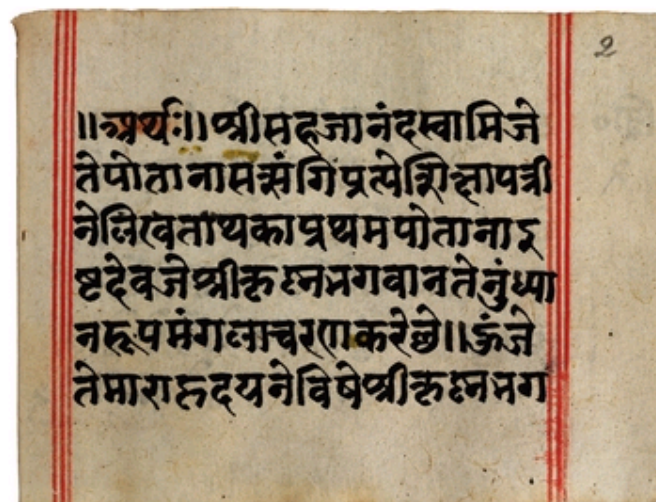 २
॥अर्थः॥श्रीसहजानंदस्वामिजे
तेपोतानासत्संगिप्रत्येशिक्षापत्री
नेलिखताथकाप्रथमपोतानाइ
ष्टदेवजेश्रीकृष्नभगवानतेनुंध्या
नरूपमंगलाचरणकरेछे॥हुंजे
तेमाराहृदयनेविषेश्रीकृष्नभग